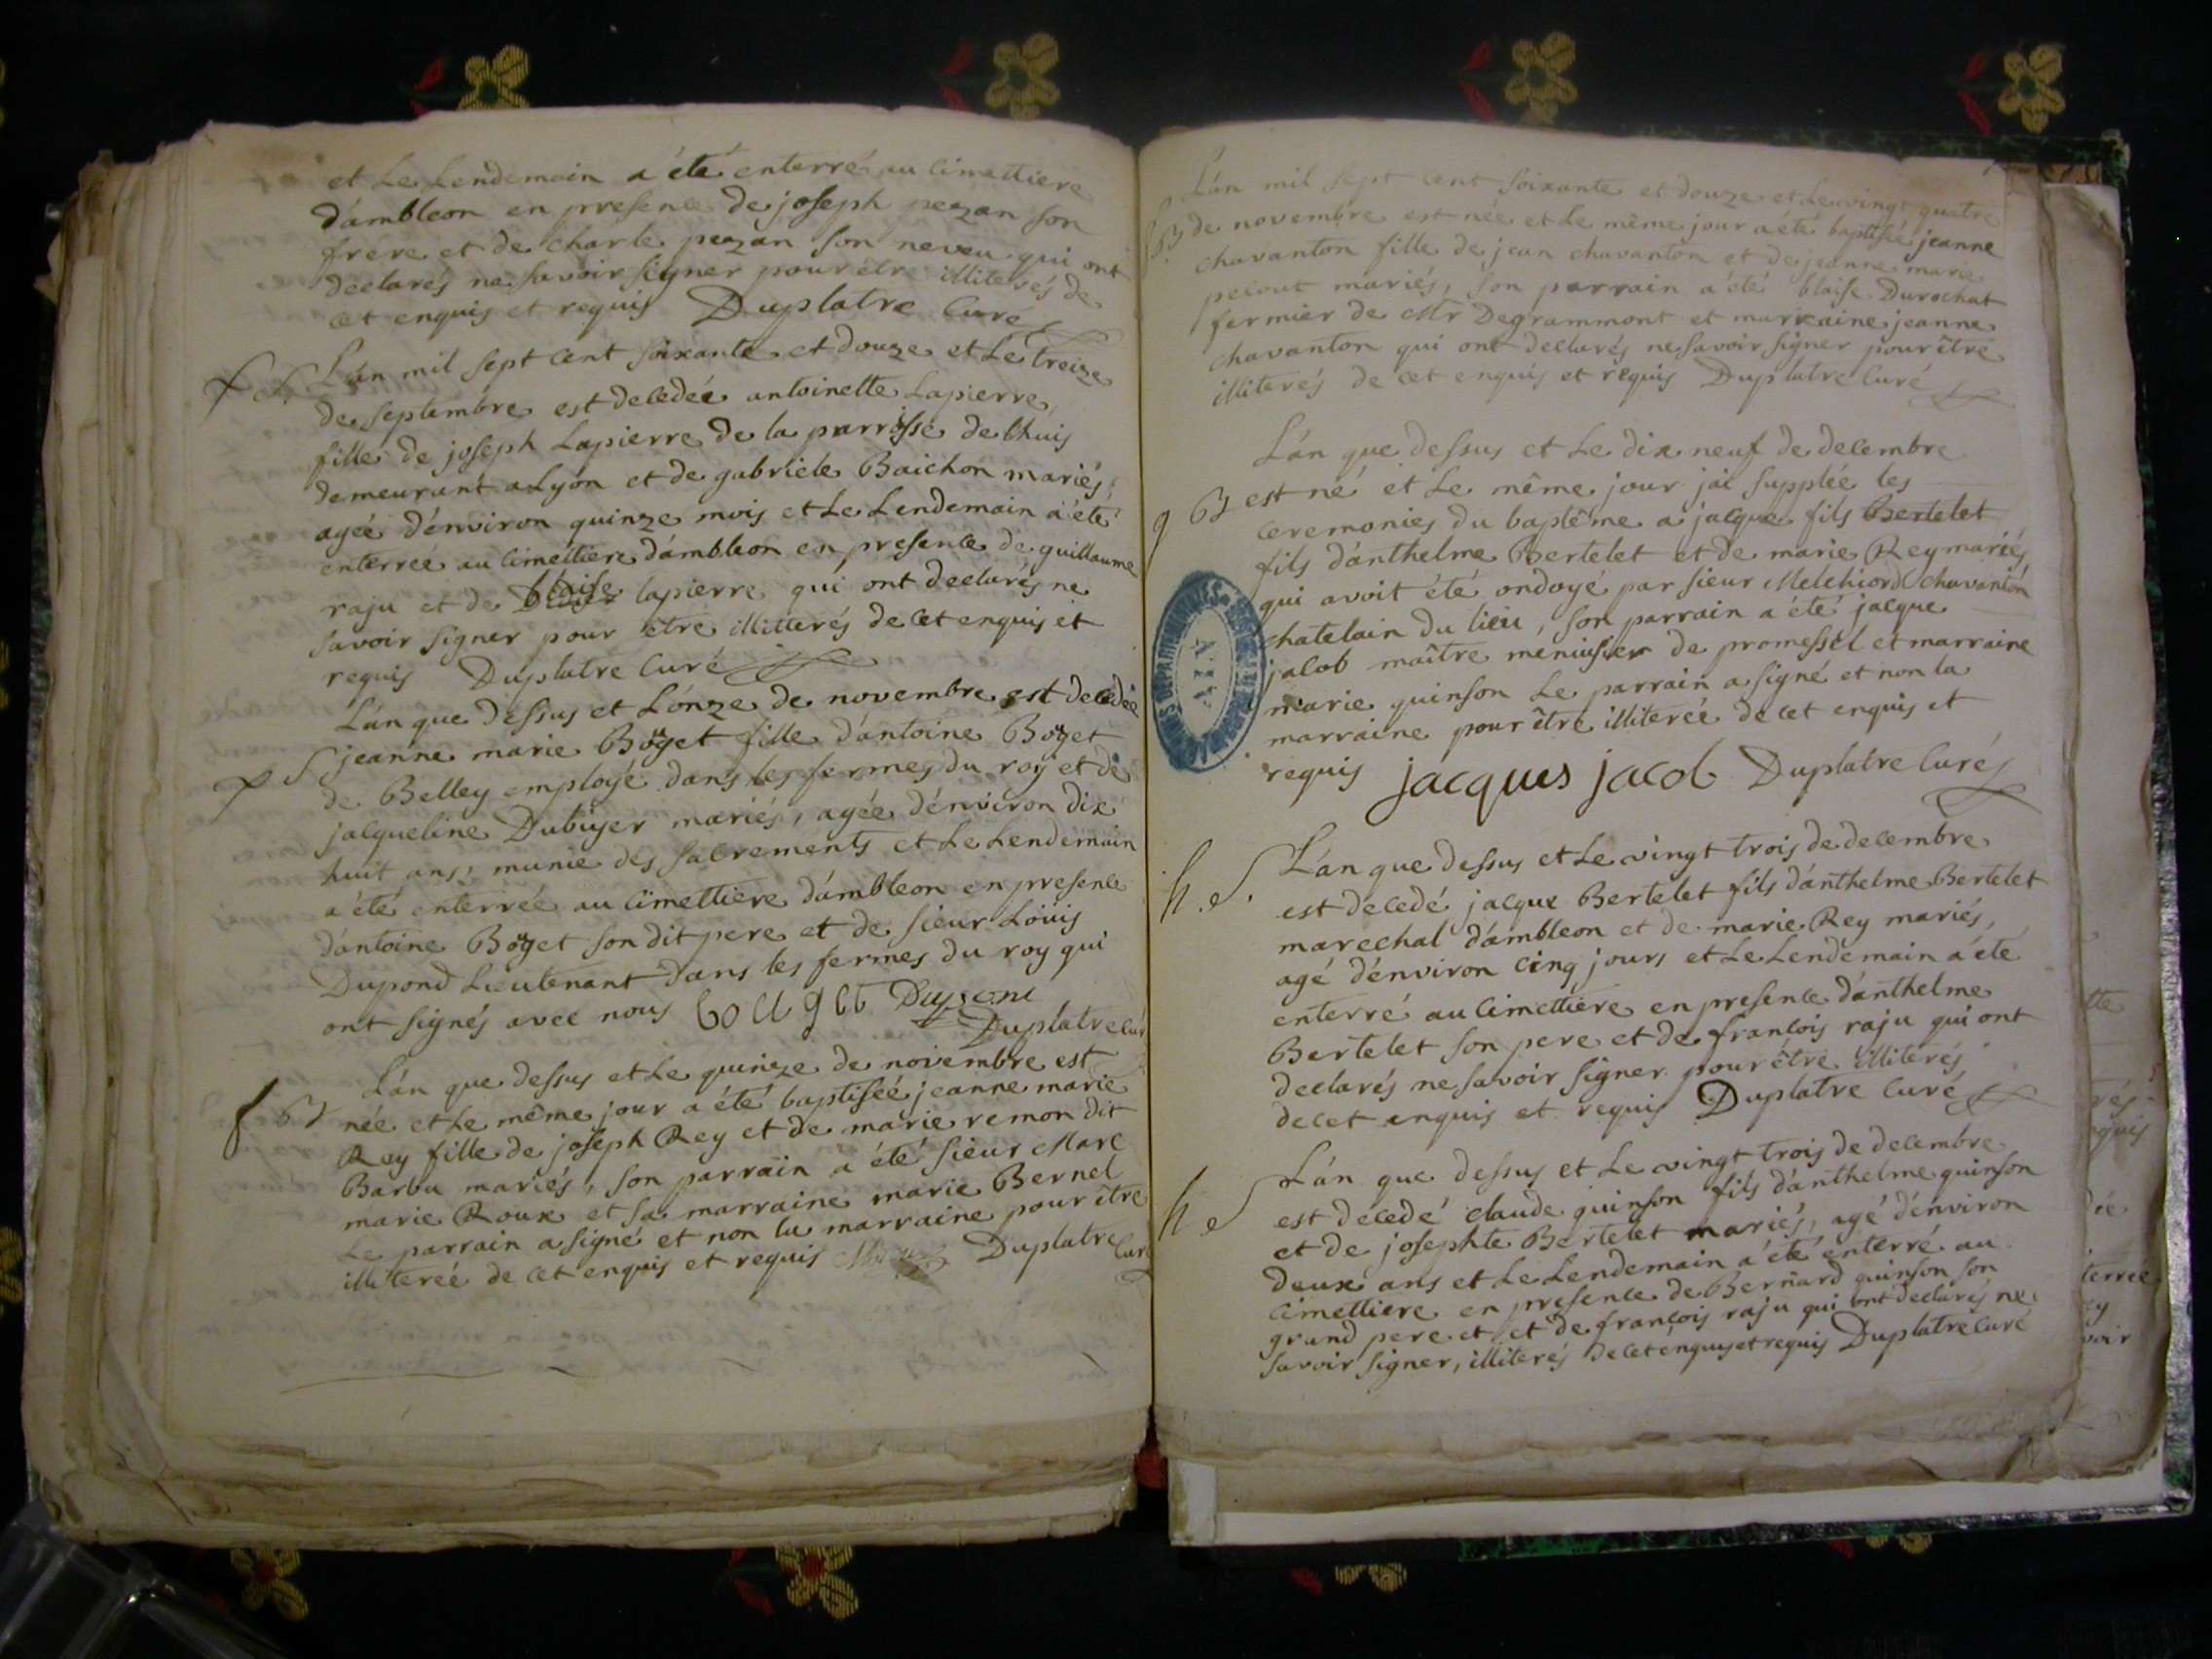 et Le Lendemain a été enterré au Cimettiere
d'ambleon en presence de joseph pezan son
frere et de charle pezan son neveu qui ont
declarés ne savoir signer pour être illiterés de
cet enquis et requis Duplatre Curé
L'an mil sept cent soixante et douze et Le treize
de septembre est decedée antoinette Lapierre
fille de joseph Lapierre de la parroisse de lhuis
demeurant a Lyon et de gabriele Baichon mariés
agée d'environ quinze mois et Le Lendemain a été
enterrée au Cimettiere d'ambleon en presence de guillaume
raju et de blaise lapierre qui ont declarés ne
savoir signer pour être illiterés de cet enquis et
requis Duplatre Curé
L'an que dessus et L'onze de novembre est decedée
S jeanne marie Böget fille d'antoine Böget
de Belley employé dans les fermes du roy et de
jacqueline Dubiyer mariés, agée d'environ dix
huit ans, munie des sacrements et Le Lendemain
a été enterrée au cimettiere d'ambleon en presence
d'antoine Böget son dit pere et de sieur Loüis
Dupond Lieutenant dans les fermes du roy qui
ont signés avec nous bouget Dupont
Duplatre Cur
L'an que dessus et Le quinze de novembre est
f B née et Le même jour a été baptisée jeanne marie
Rey fille de joseph Rey et de marie remon dit
Barbu mariés, son parrain a été sieur Marc
marie Roux et sa marraine marie Bernel
Le parrain a signé et non la marraine pour être
illiterée de cet enquis et requis Duplatre Curé
L'an mil sept cent soixante et douze et Le vingt quatre
B de novembre est née et Le même jour a été baptisée jeanne
chavanton fille de jean chavanton et de jeanne marie
pelout mariés, son parrain a été blaise Durochat
fermier de Mr Degrammont et marraine jeanne
chavanton qui ont declarés ne savoir signer pour être
illiterés de cet enquis et requis Duplatre Curé
L'an que dessus et Le dix neuf de decembre
g B est né et Le même jour jai supplée les
ceremonies du baptême a jacque fils Bertelet
fils d'anthelme Bertelet et de marie Rey mariés,
qui avoit été ondoyé par sieur Melchiord chavanton
chatelain du lieu, son parrain a été jacque
jacob maître menuisier de promessel et marraine
marie quinson Le parrain a signé et non la
marraine pour être illiterée de cet enquis et
requis jacques jacob Duplatre Curé
L'an que dessus et Le vingt trois de decembre
h. S. est decedé jacque Bertelet fils d'anthelme Bertelet
marechal d'ambleon et de marie Rey mariés,
agé d'environ cinq jours et Le Lendemain a été
enterré au Cimettiere en presence d'anthelme
Bertelet son pere et de francois raju qui ont
declarés ne savoir signer pour être illiterés
de cet enquis et requis Duplatre Curé
L'an que dessus et Le vingt trois de decembre
h S est décedé claude quinson fils d'anthelme quinson
et de josephte Bertelet mariés, agé d'environ
deux ans et Le Lendemain a été enterré au
Cimettiere en presence de Bernard quinson son
grand pere et et de francois raju qui ont declarés ne
savoir signer, illiterés de cet enquis et requis Duplatre Curé
AIN